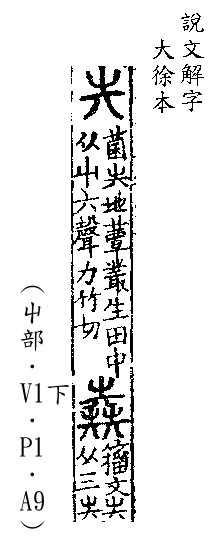 說文解字
大徐本
圥
菌圥地蕈叢生田中
从屮六聲力竹切
𡴆
籒文圥
从三圥
（屮部．V1下．P1．A9）